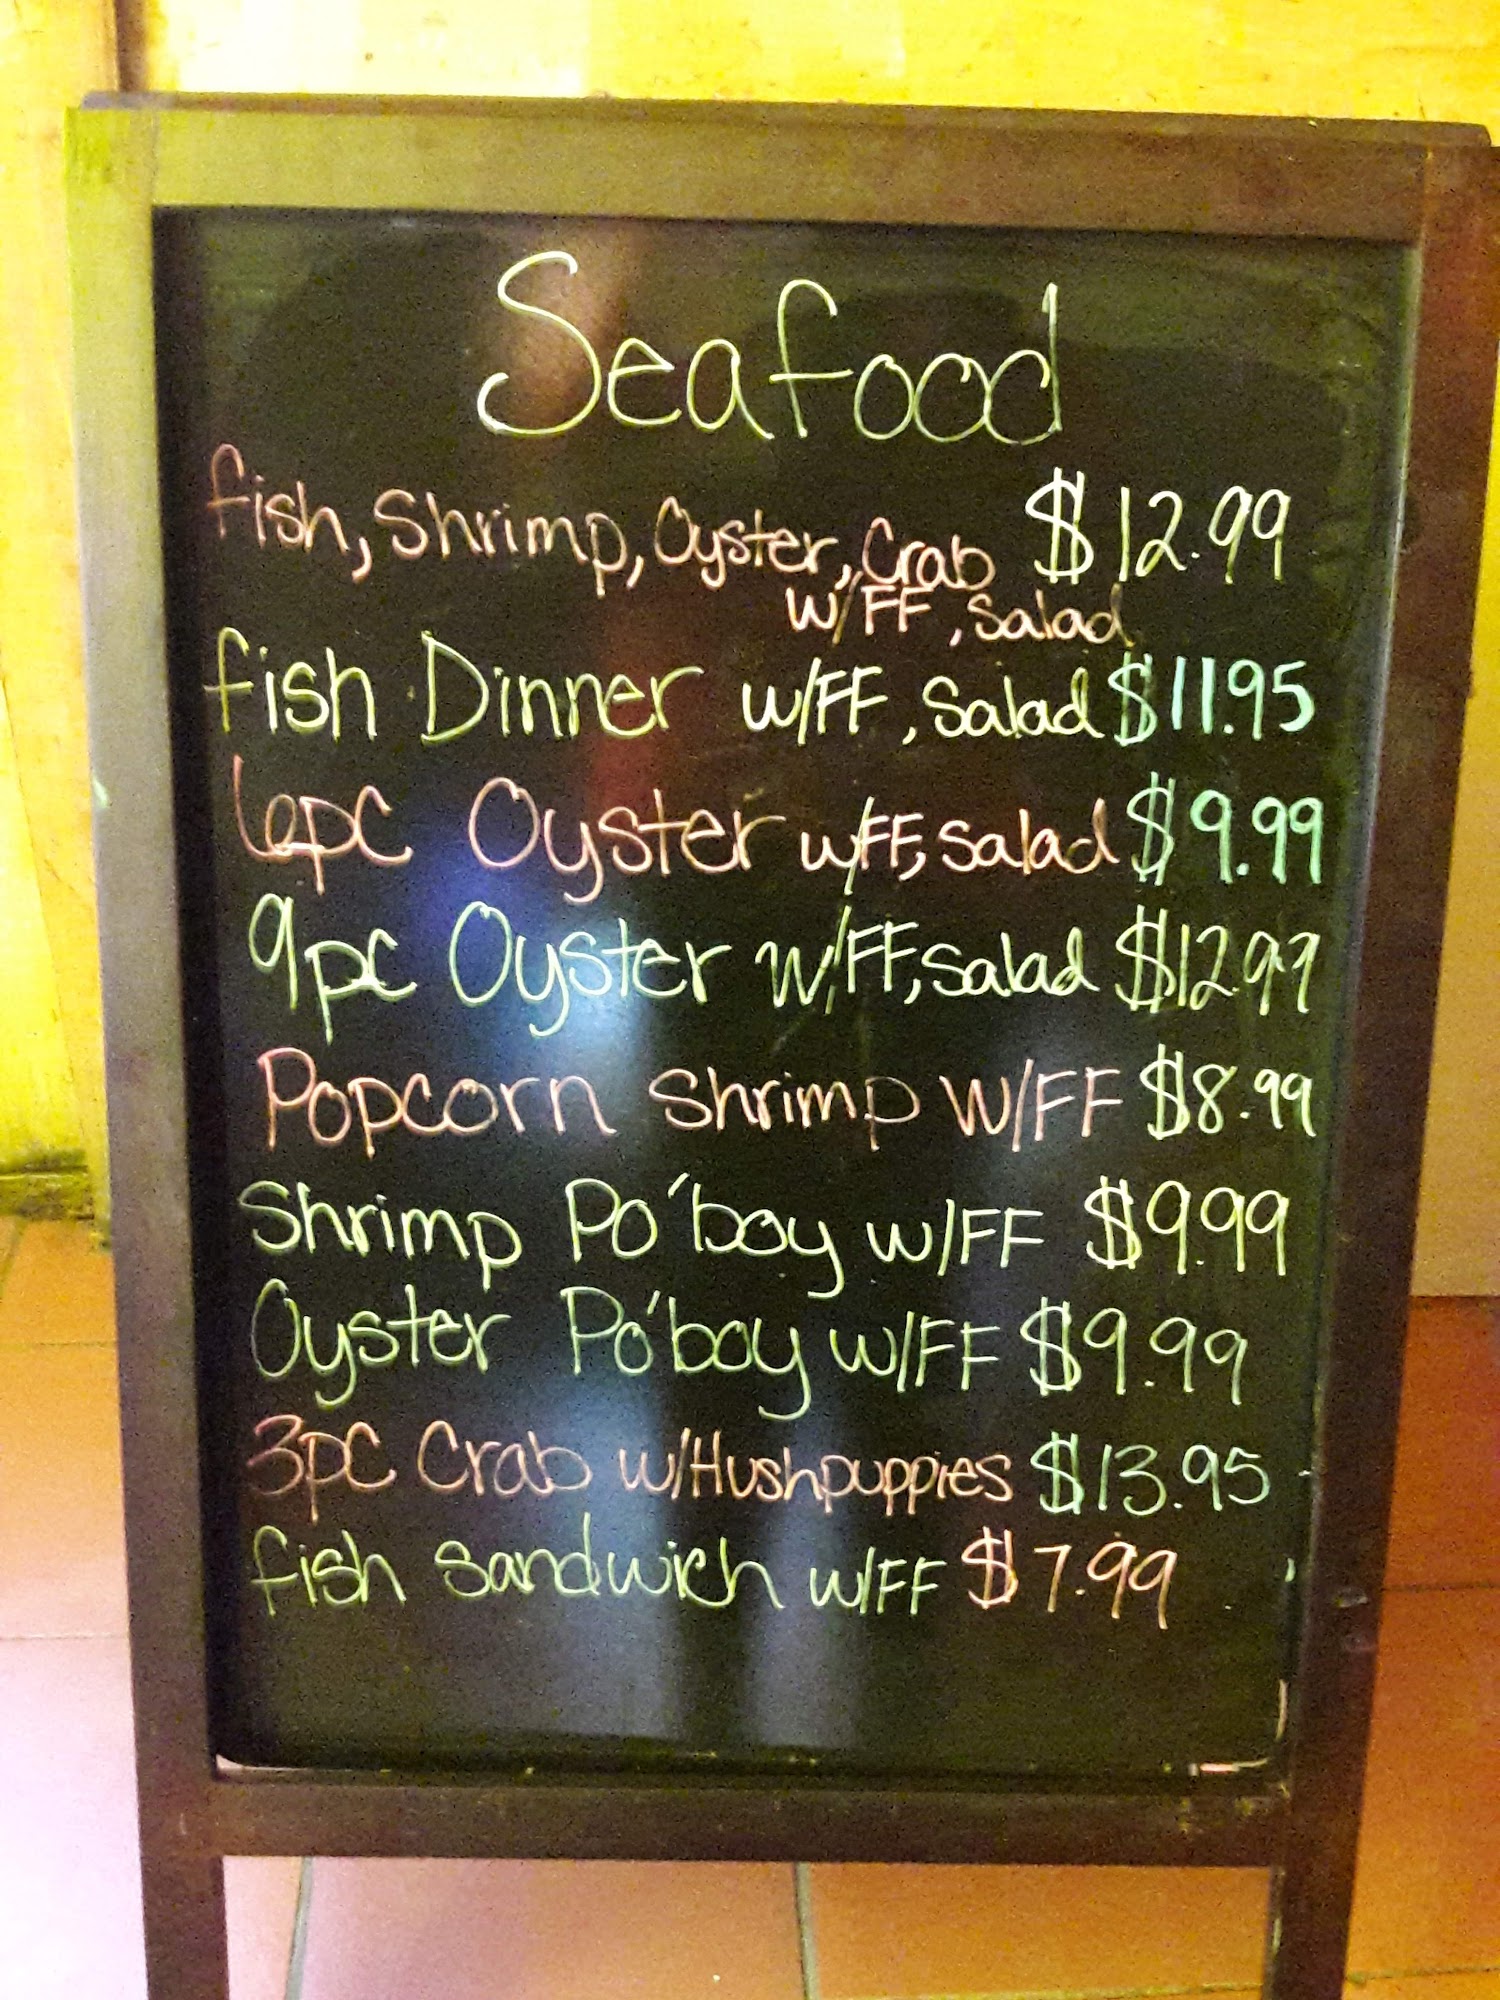 Seafood
fish, Shrimp, Oyster, Crab $12.99
w/FF, Salad
fish Dinner w/FF, Salad $11.95
6pc Oyster w/FF, Salad $9.99
9pc Oyster w/FF, Salad $12.99
Popcorn Shrimp w/FF $8.99
Shrimp Po'boy w/FF $9.99
Oyster Po'boy w/FF $9.99
3pc Crab w/Hushpuppies $13.95
fish sandwich w/FF $7.99